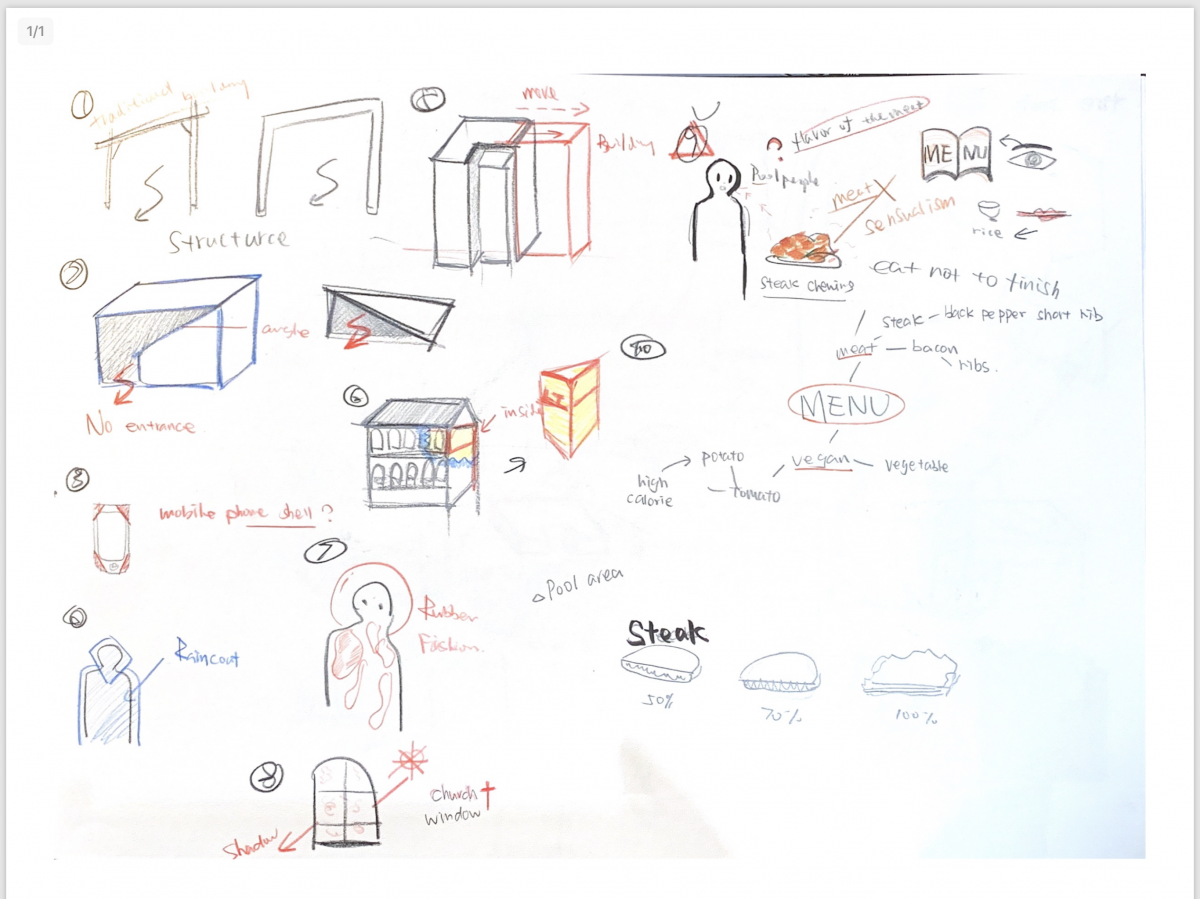 1/1
①
traditional building
Structurce
move
Building
⑨
flavor of the meat
?
Pool people
meat
sensualism
ME NU
rice
steak chewing
eat not to finish
angle
No entrance
⑥
inside
⑩
steak
back pepper short rib
meat
bacon
ribs.
MENU
vegan
vegetable
potato
high
calorie
tomato
③
mobike phone shell?
⑦
Rubber
Fashion.
Pool area
Raincoat
Steak
50%
70%
100%
⑧
church
window
Shadow